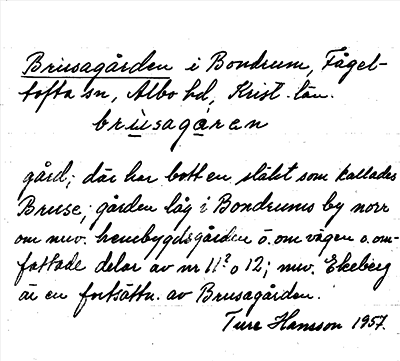 Brusagården i Bondrum, Fågel-
tofta sn, Albo hd, Krist. län.
brùsagaren
gård; där har bott en släkt som kallades
Bruse; gården låg i Bondrums by norr
om nuv. hembygdsgården ö. om vägen o. om-
fattade delar av nr 11² o 12; nuv. Ekeberg
är en fortsättn. av Brusagården.
Ture Hansson 1957.